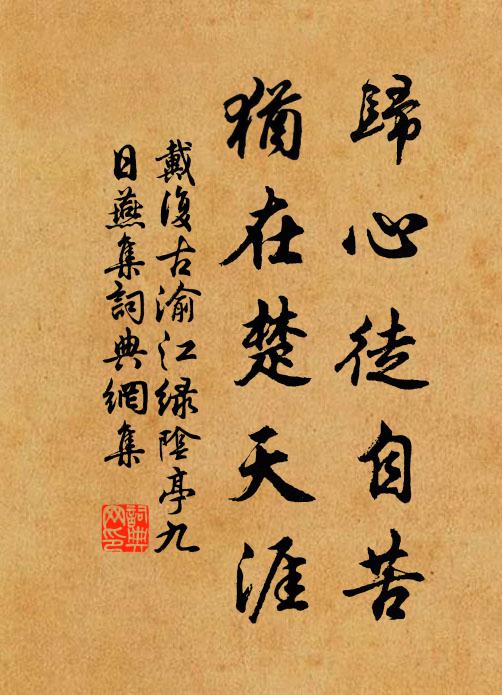 歸心徒自苦
猶在楚天涯
戴復古渝江綠陰亭九
日燕集詞典網集
詞典
网印